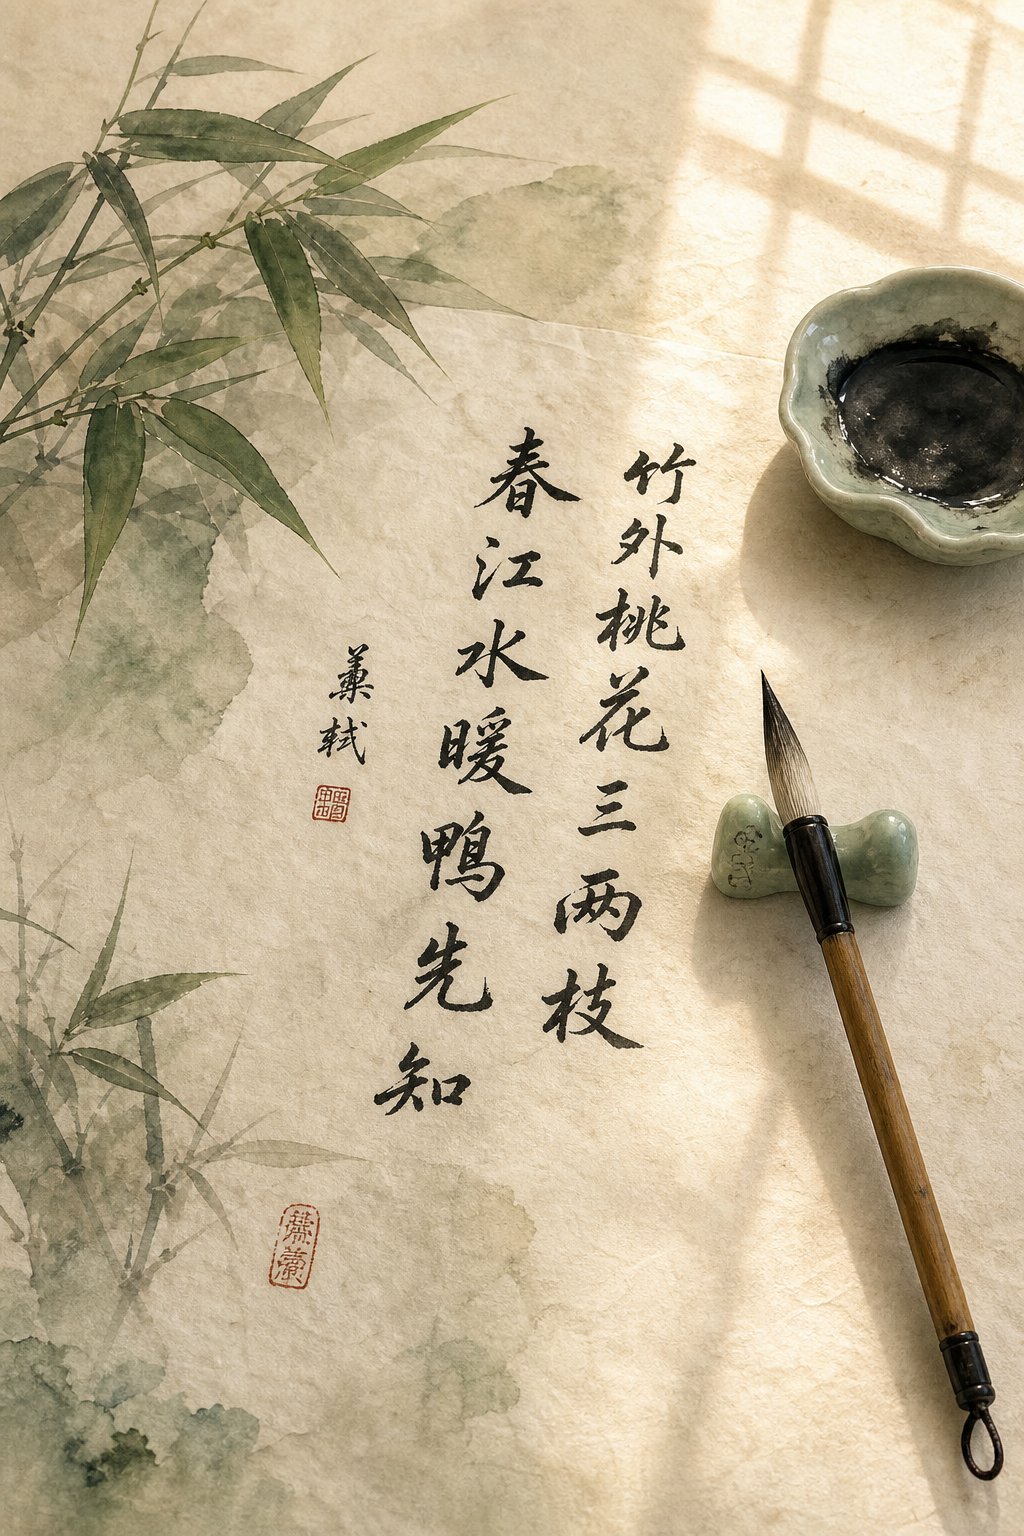 竹外桃花三两枝
春江水暖鸭先知
轼